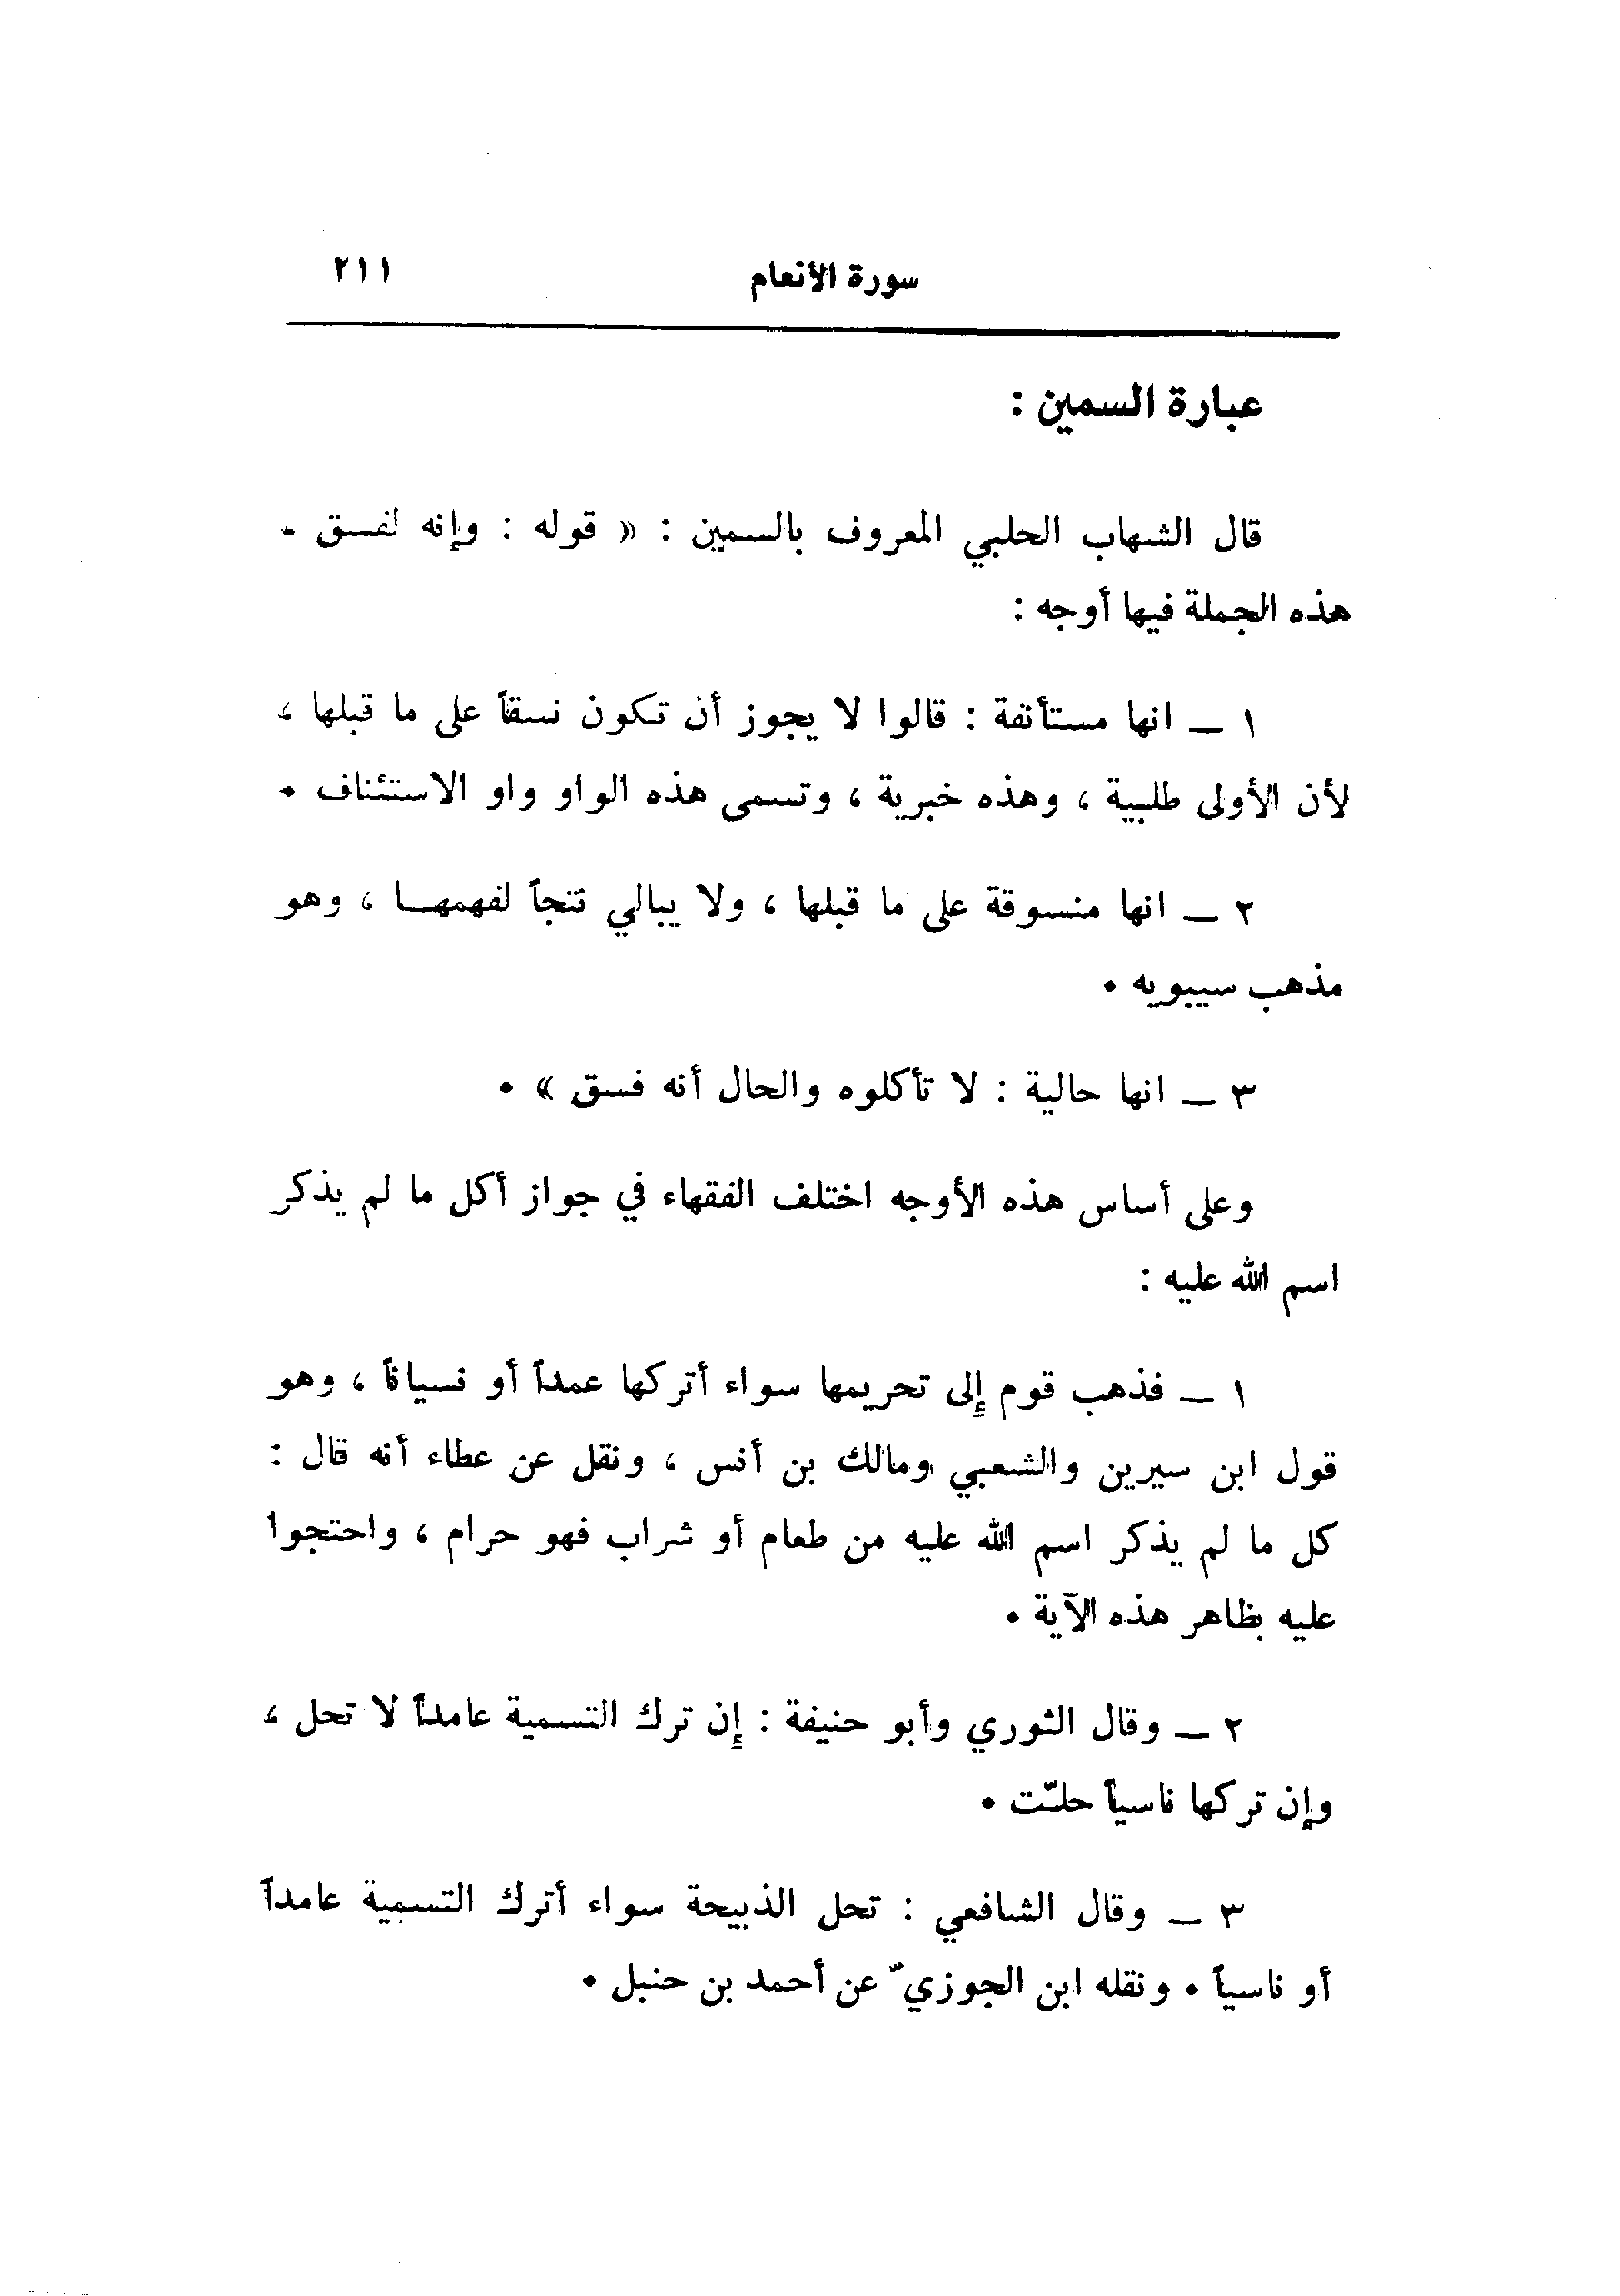 سورة الأنعام ٢١١
عبارة السمين :
قال الشهاب الحلبي المعروف بالسمين : « قوله : وإنه لفسق -
هذه الجملة فيها أوجه :
١ — انها مستأنفة : قالوا لا يجوز أن تكون نسقاً على ما قبلها ،
لأن الأولى طلبية ، وهذه خبرية ، وتسمى هذه الواو واو الاستئناف ٠
٢ — انها منسوقة على ما قبلها ، ولا يبالي تتجاً لفهمهـا ، وهو
مذهب سيبويه ٠
٣ — انها حالية : لا تأكلوه والحال أنه فسق » ٠
وعلى أساس هذه الأوجه اختلف الفقهاء في جواز أكل ما لم يذكر
اسم الله عليه :
١ — فذهب قوم إلى تحريمها سواء أتركها عمداً أو نسياناً ، وهو
قول ابن سيرين والشعبي ومالك بن أنس ، ونقل عن عطاء أنه قال :
كل ما لم يذكر اسم الله عليه من طعام أو شراب فهو حرام ، واحتجوا
عليه بظاهر هذه الآية ٠
٢ — وقال الثوري وأبو حنيفة : إن ترك التسمية عامداً لا تحل ،
وإن تركها ناسياً حلّت ٠
٣ — وقال الشافعي : تحل الذبيحة سواء أترك التسمية عامداً
أو ناسياً ٠ ونقله ابن الجوزيّ عن أحمد بن حنبل ٠